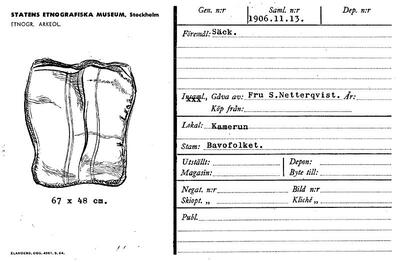 STATENS ETNOGRAFISKA MUSEUM, Stockholm
ETNOGR. ARKEOL.
67 x 48 cm.
ELANDERS, GBG. 4001, S. 64.
Gen. n:r Saml. n:r Dep. n:r
1906.11.13.
Föremål: Säck.
Gåva av: Fru S.Netterqvist. År:
Köp från:
Lokal: Kamerun
Stam: Bavofolket.
Utställs: Depon:
Magasin: Byte till:
Negat. n:r Bild n:r
Skiopt. „ Kliché „
Publ.